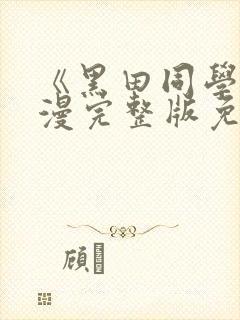 《黑田同學
漫完整版免
顾